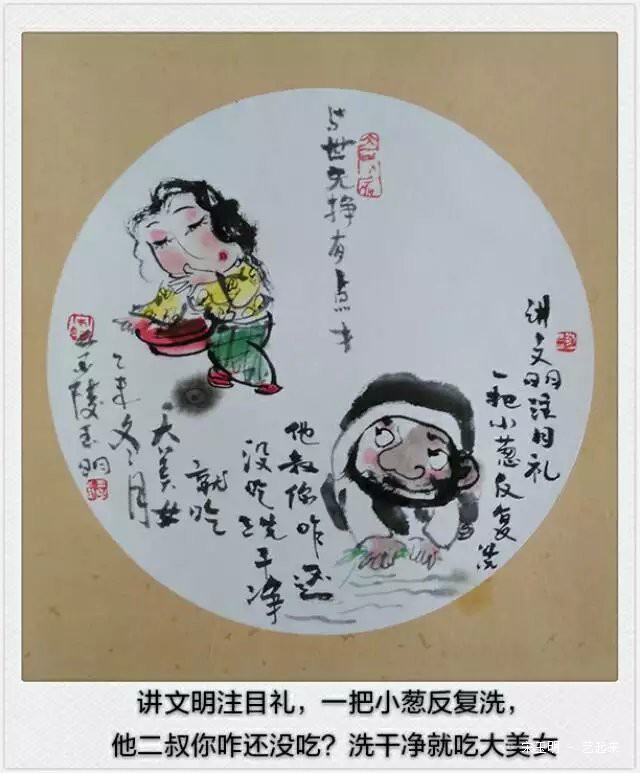 与世无挣有点
讲文明注目礼
一把小葱反复洗
他叔你咋还
没吃洗干净
就吃
大美女
乙未冬月
陵玉明
讲文明注目礼，一把小葱反复洗，
他二叔你咋还没吃？洗干净就吃大美女
玉明 - 艺起来